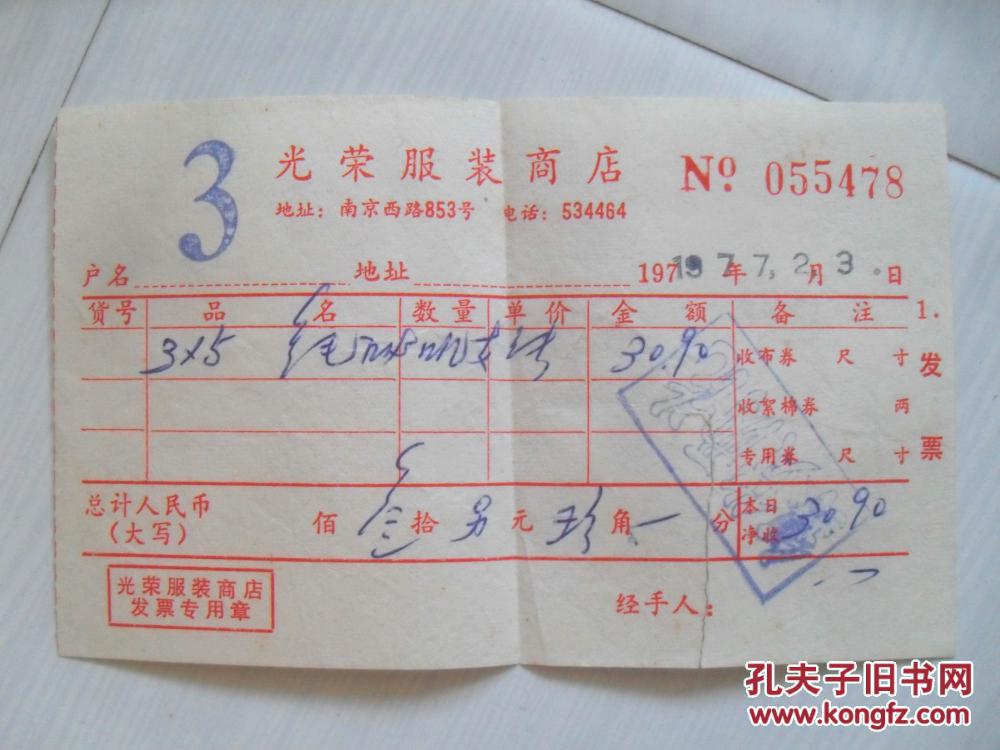 3
光荣服装商店 № 055478
地址：南京西路853号 电话：534464
户名 地址 197 7年 7. 2月 3.日
货号 品名 数量 单价 金额 备注
3×5 30.90 收布券 尺 寸
收絮棉券 两
专用券 尺 寸
总计人民币（大写） 佰 叁拾 另元 玖角 一分 本日净收 30.90
1.发票
光荣服装商店
发票专用章
经手人：
孔夫子旧书网
www.kongfz.com